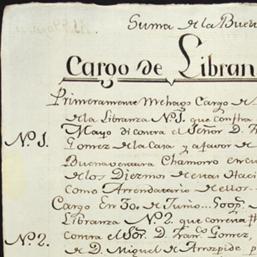 Suma de la Buel
Cargo de Libran
Primeramente Mehago Cargo de
de la Libranza Nº1. que consta
Nº1.
Mayo di contra el Señor D. F
Gomez de la Casa y afavor de
Buenaventura Chamorro en cu
de los Diezmos de estas Haci
como Arrendatario de ellos
Cargo En 30. de Junio
Libranza Nº2 que
Nº2.
contra el Sor. D. Franco. Gomez,
de D. Miguel de Arrospide p